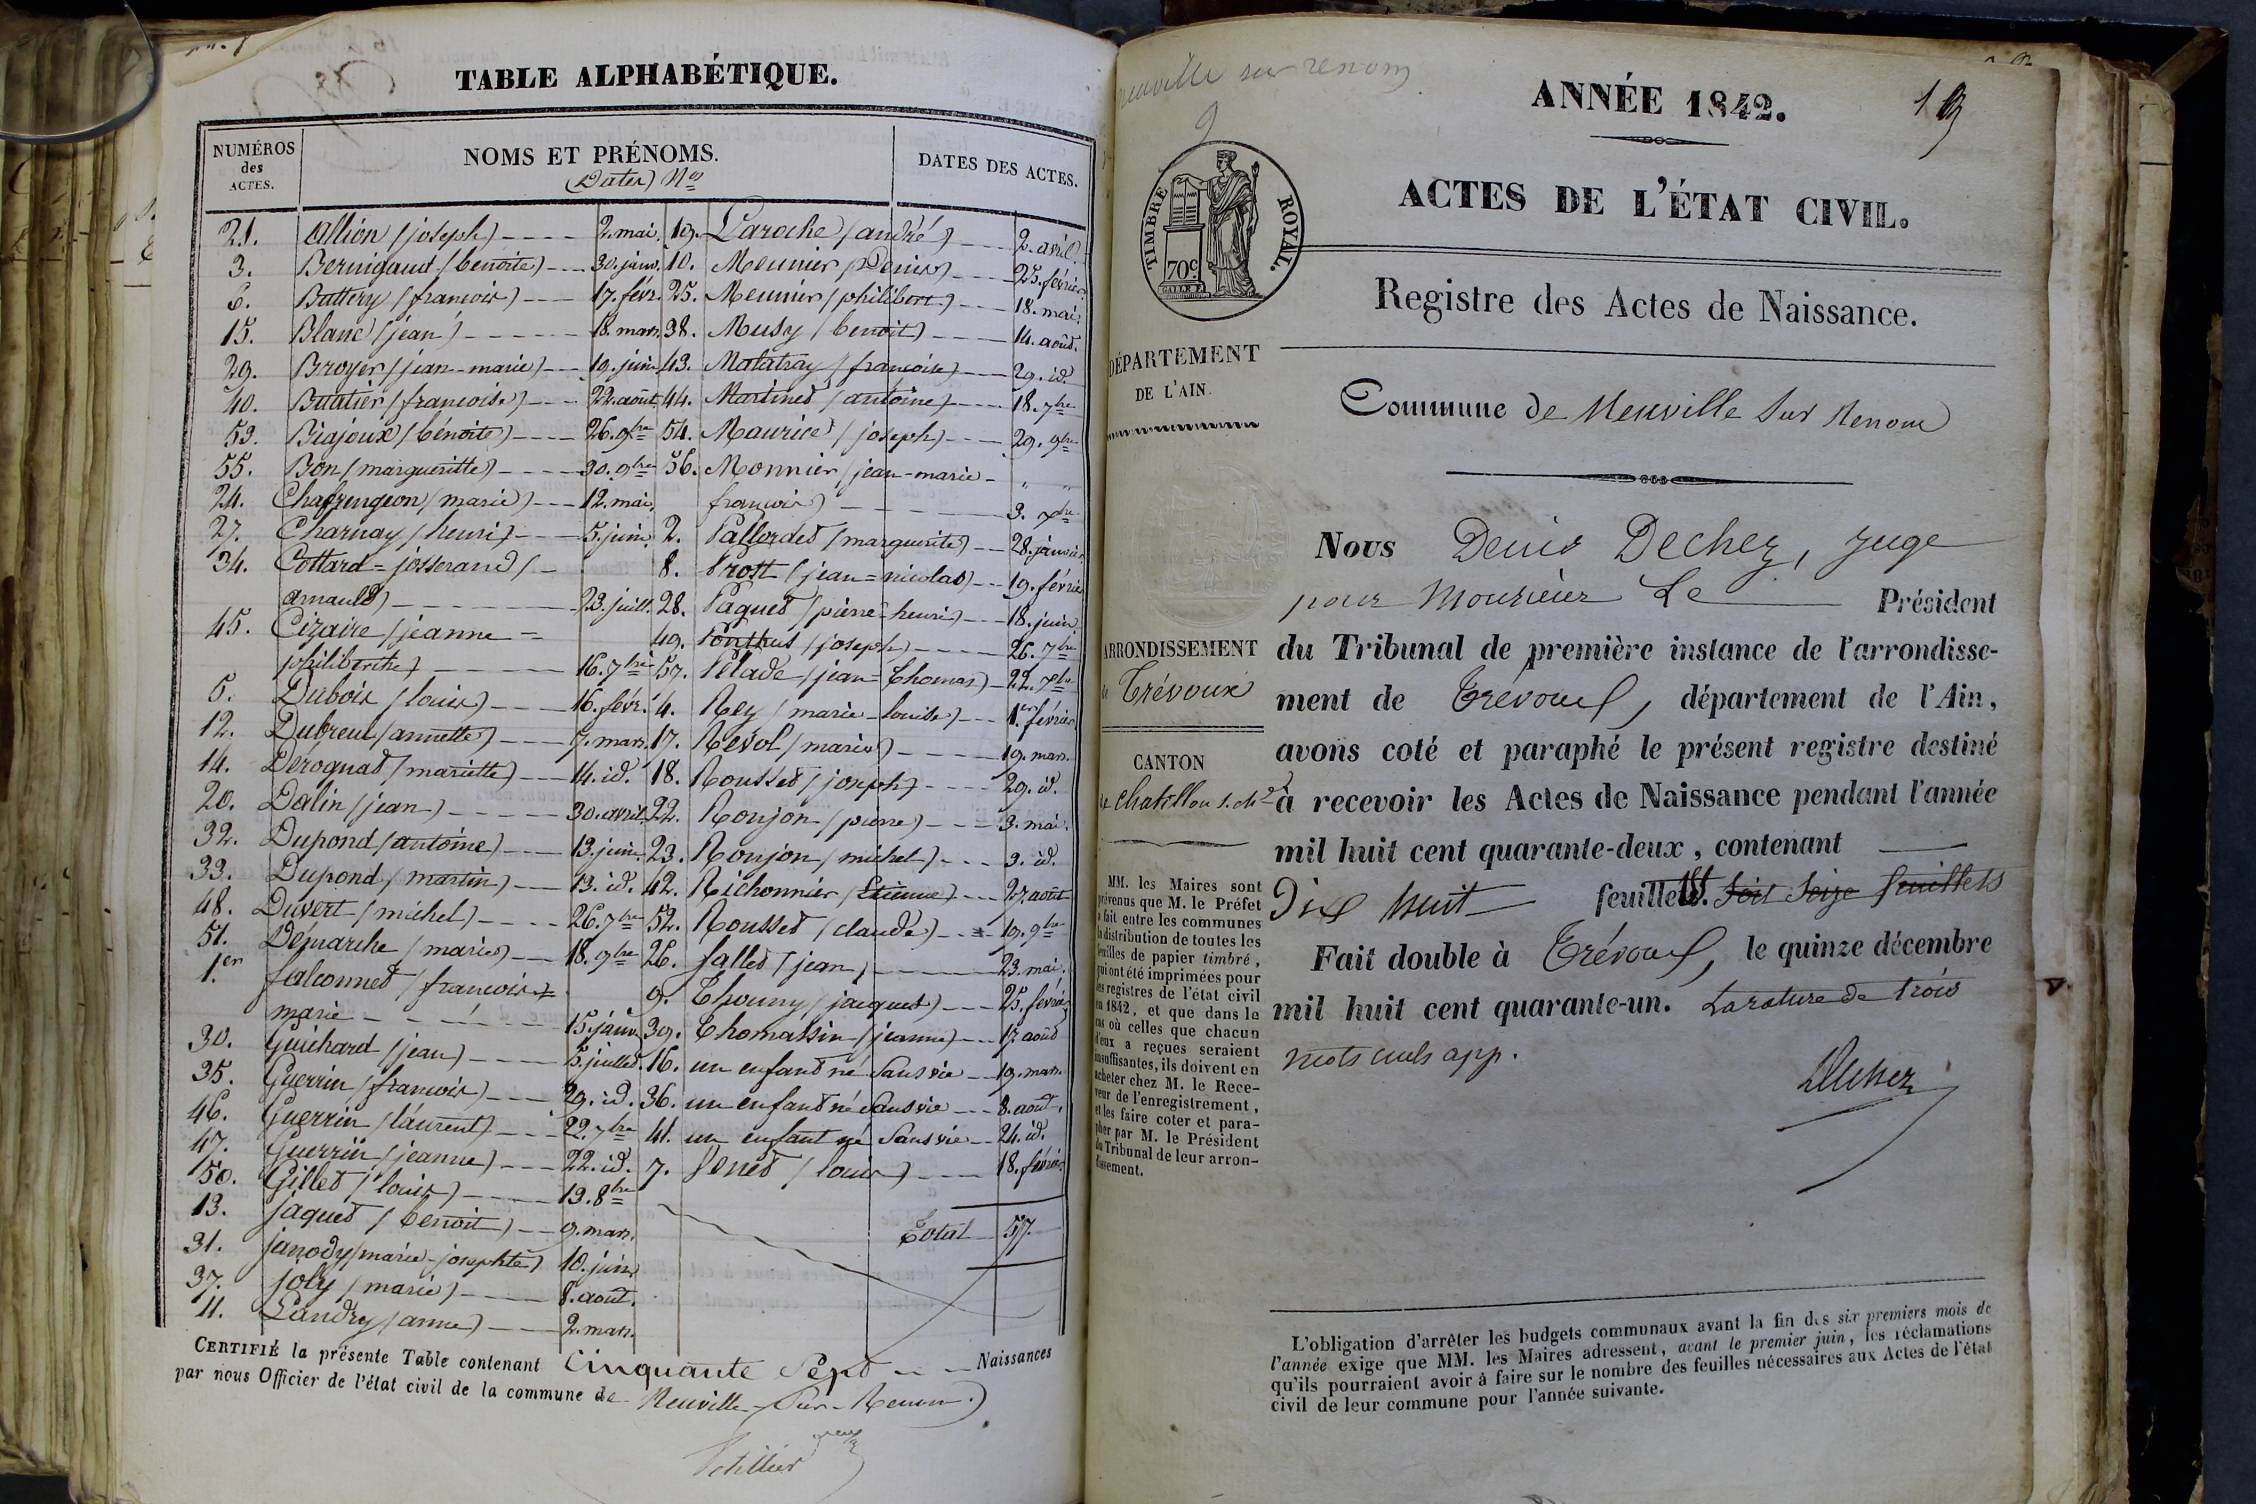 TABLE ALPHABÉTIQUE.
NUMÉROS des ACTES.
NOMS ET PRÉNOMS.
(Dates) Nos
DATES DES ACTES.
21. Allion (joseph) 2. mai.
3. Bernigaud (benoite) 30. janv.
6. Buttery (francois) 17. févr.
15. Blanc (jean) 18. mars.
29. Broyer (jean-marie) 19. juin
40. Buatier (francoise) 22. août.
53. Biajoux (benoite) 26. 9bre
55. Bon (margueritte) 30. 9bre
24. Chafrengeon (marie) 12. mai.
27. Charnay (henri) 5. juin.
34. Cottard = josserand (
arnauld) 23. juill.
45. Cizaire (jeanne =
philiberthe) 16. 7bre
5. Dubois (louis) 16. févr.
12. Dubreul (annette) 7. mars.
14. Dérognat (mariette) 14. id.
20. Dalin (jean) 30. avril.
32. Dupond (antoine) 13. juin.
33. Dupond (martin) 13. id.
48. Duvert (michel) 26. 7bre
51. Démarche (marie) 18. 9bre
1.er falconnet (francois =
marie 15. janv.
30. Guichard (jean) 5. juillet.
35. Guerrin (francois) 29. id.
46. Guerrin (laurent) 22. 7bre
47. Guerrin (jeanne) 22. id.
50. Gillet (louis) 13. 8bre
13. jaquet (benoit) 9. mars.
31. janody (marie-josephte) 10. juin
37. joly (marie) 8. août.
11. Landry (anne) 2. mars.
19. Laroche (andré) 2. avril.
10. Meunier (Denis) 25. février.
25. Meunier (philibert) 18. mai.
38. Musy (benoit) 14. août.
43. Malatray (francoise) 29. id.
44. Martinet (antoine) 18. 7bre
54. Maurice (joseph) 29. 9bre
56. Monnier (jean-marie-
francois) 3. xbre
2. Pallordet (marguerite) 28. janvier
8. Prost (jean = nicolas) 19. février
28. Paquet (pierre-henri) 18. juin
49. Ponthus (joseph) 26. 7bre
57. Pelade (jean = Thomas) 22. xbre
4. Rey (marie-louise) 1.er février
17. Revol (marie) 19. mars.
18. Rousset (joseph) 29. id.
22. Ronjon (pierre) 3. mai.
23. Ronjon (michel) 3. id.
42. Richonnier (Etienne) 27. août
52. Rousset (claude) 19. 9bre
26. Sallet (jean) 23. mai.
9. Thouny (jacques) 25. février
39. Thomassin (jeanne) 17. août
16. un enfant né Sans vie 19. mars.
36. un enfant né Sans vie 8. août.
41. un enfant né Sans vie 24. id.
7. Senet (louis) 18. février
Total 57.
CERTIFIÉ la présente Table contenant Cinquante Sept Naissances
par nous Officier de l'état civil de la commune de Neuville-Sur-Renom.
neuville sur renom
9
TIMBRE ROYAL.
70c
ANNÉE 1842.
ACTES DE L'ÉTAT CIVIL.
Registre des Actes de Naissance.
DÉPARTEMENT
DE L'AIN.
Commune de Neuville Sur Renom
Nous Denis Dechez, juge
pour Monsieur Le Président
ARRONDISSEMENT
de Trévoux
du Tribunal de première instance de l'arrondisse-
ment de Trévoux, département de l'Ain,
avons coté et paraphé le présent registre destiné
CANTON
de Chatillon s. ch.
à recevoir les Actes de Naissance pendant l'année
mil huit cent quarante-deux, contenant
Dix huit feuillets. Soit Seize feuillets
Fait double à Trévoux, le quinze décembre
mil huit cent quarante-un. La rature de trois
mots nuls app.
Dechez
MM. les Maires sont
prévenus que M. le Préfet
a fait entre les communes
la distribution de toutes les
feuilles de papier timbré,
qui ont été imprimées pour
les registres de l'état civil
en 1842, et que dans le
cas où celles que chacun
d'eux a reçues seraient
insuffisantes, ils doivent en
acheter chez M. le Rece-
veur de l'enregistrement,
et les faire coter et para-
pher par M. le Président
du Tribunal de leur arron-
dissement.
L'obligation d'arrêter les budgets communaux avant la fin des six premiers mois de
l'année exige que MM. les Maires adressent, avant le premier juin, les réclamations
qu'ils pourraient avoir à faire sur le nombre des feuilles nécessaires aux Actes de l'état
civil de leur commune pour l'année suivante.